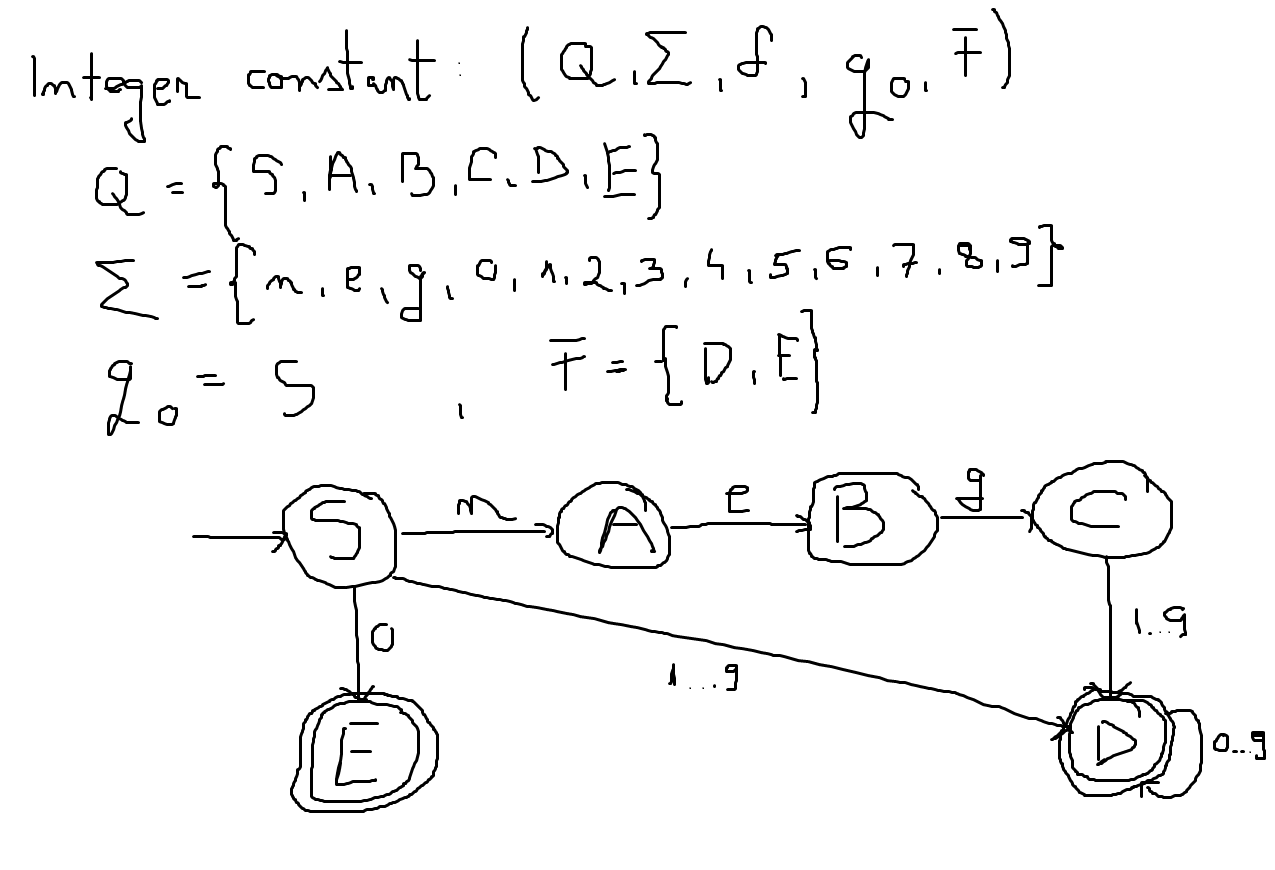 Integer constant: (Q, Σ, f, q0, F)
Q = {S, A, B, C, D, E}
Σ = {n, e, g, 0, 1, 2, 3, 4, 5, 6, 7, 8, 9}
q0 = S, F = {D, E}
S n A e B g C
0
1...9
1...9
E
D
0...9